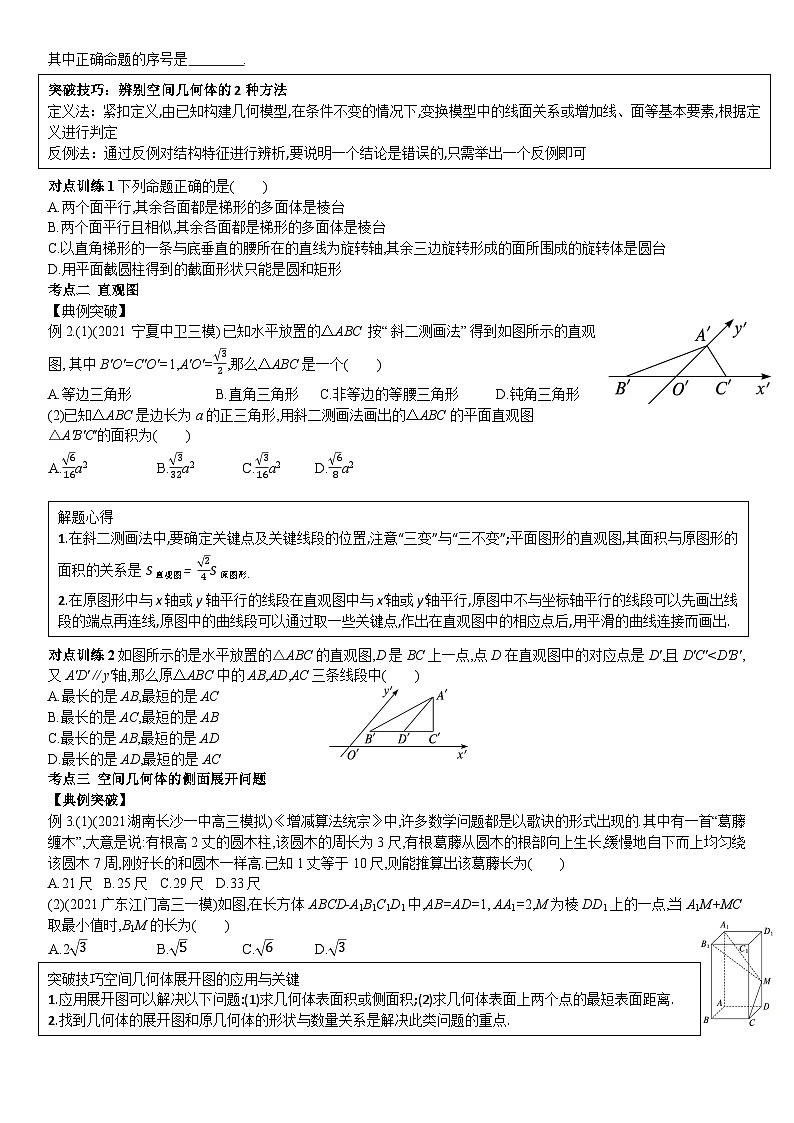 其中正确命题的序号是________.
突破技巧：辨别空间几何体的2种方法
定义法：紧扣定义,由已知构建几何模型,在条件不变的情况下,变换模型中的线面关系或增加线、面等基本要素,根据定
义进行判定
反例法：通过反例对结构特征进行辨析,要说明一个结论是错误的,只需举出一个反例即可
对点训练1下列命题正确的是(　　)
A.两个面平行,其余各面都是梯形的多面体是棱台
B.两个面平行且相似,其余各面都是梯形的多面体是棱台
C.以直角梯形的一条与底垂直的腰所在的直线为旋转轴,其余三边旋转形成的面所围成的旋转体是圆台
D.用平面截圆柱得到的截面形状只能是圆和矩形
考点二 直观图
【典例突破】
例2.(1)(2021 宁夏中卫三模)已知水平放置的△ABC 按“斜二测画法”得到如图所示的直观
图,其中B'O'=C'O'=1,A'O'=√3/2,那么△ABC是一个(　　)
A.等边三角形 B.直角三角形 C.非等边的等腰三角形 D.钝角三角形
A' y' B' O' C' x'
(2)已知△ABC是边长为a的正三角形,用斜二测画法画出的△ABC的平面直观图
△A'B'C'的面积为(　　)
A.√6/16a² B.√3/32a² C.√3/16a² D.√6/8a²
解题心得
1.在斜二测画法中,要确定关键点及关键线段的位置,注意“三变”与“三不变”;平面图形的直观图,其面积与原图形的
面积的关系是S直观图= √2/4S原图形.
2.在原图形中与x轴或y轴平行的线段在直观图中与x'轴或y'轴平行,原图中不与坐标轴平行的线段可以先画出线
段的端点再连线,原图中的曲线段可以通过取一些关键点,作出在直观图中的相应点后,用平滑的曲线连接而画出.
对点训练2如图所示的是水平放置的△ABC的直观图,D是BC上一点,点D在直观图中的对应点是D',且D'C'<D'B',
又A'D'∥y'轴,那么原△ABC中的AB,AD,AC三条线段中(　　)
A.最长的是AB,最短的是AC
B.最长的是AC,最短的是AB
C.最长的是AB,最短的是AD
D.最长的是AD,最短的是AC
y' A' B' D' C' O' x'
考点三 空间几何体的侧面展开问题
【典例突破】
例3.(1)(2021湖南长沙一中高三模拟)《增减算法统宗》中,许多数学问题都是以歌诀的形式出现的.其中有一首“葛藤
缠木”,大意是说:有根高2丈的圆木柱,该圆木的周长为3尺,有根葛藤从圆木的根部向上生长,缓慢地自下而上均匀绕
该圆木7周,刚好长的和圆木一样高.已知1丈等于10尺,则能推算出该葛藤长为(　　)
A.21尺 B.25尺 C.29尺 D.33尺
(2)(2021广东江门高三一模)如图,在长方体ABCD-A₁B₁C₁D₁中,AB=AD=1, AA₁=2,M为棱DD₁上的一点,当A₁M+MC
取最小值时,B₁M的长为(　　)
A.2√3 B.√5 C.√6 D.√3
A₁ D₁ B₁ C₁ M A D B C
突破技巧空间几何体展开图的应用与关键
1.应用展开图可以解决以下问题:(1)求几何体表面积或侧面积;(2)求几何体表面上两个点的最短表面距离.
2.找到几何体的展开图和原几何体的形状与数量关系是解决此类问题的重点.